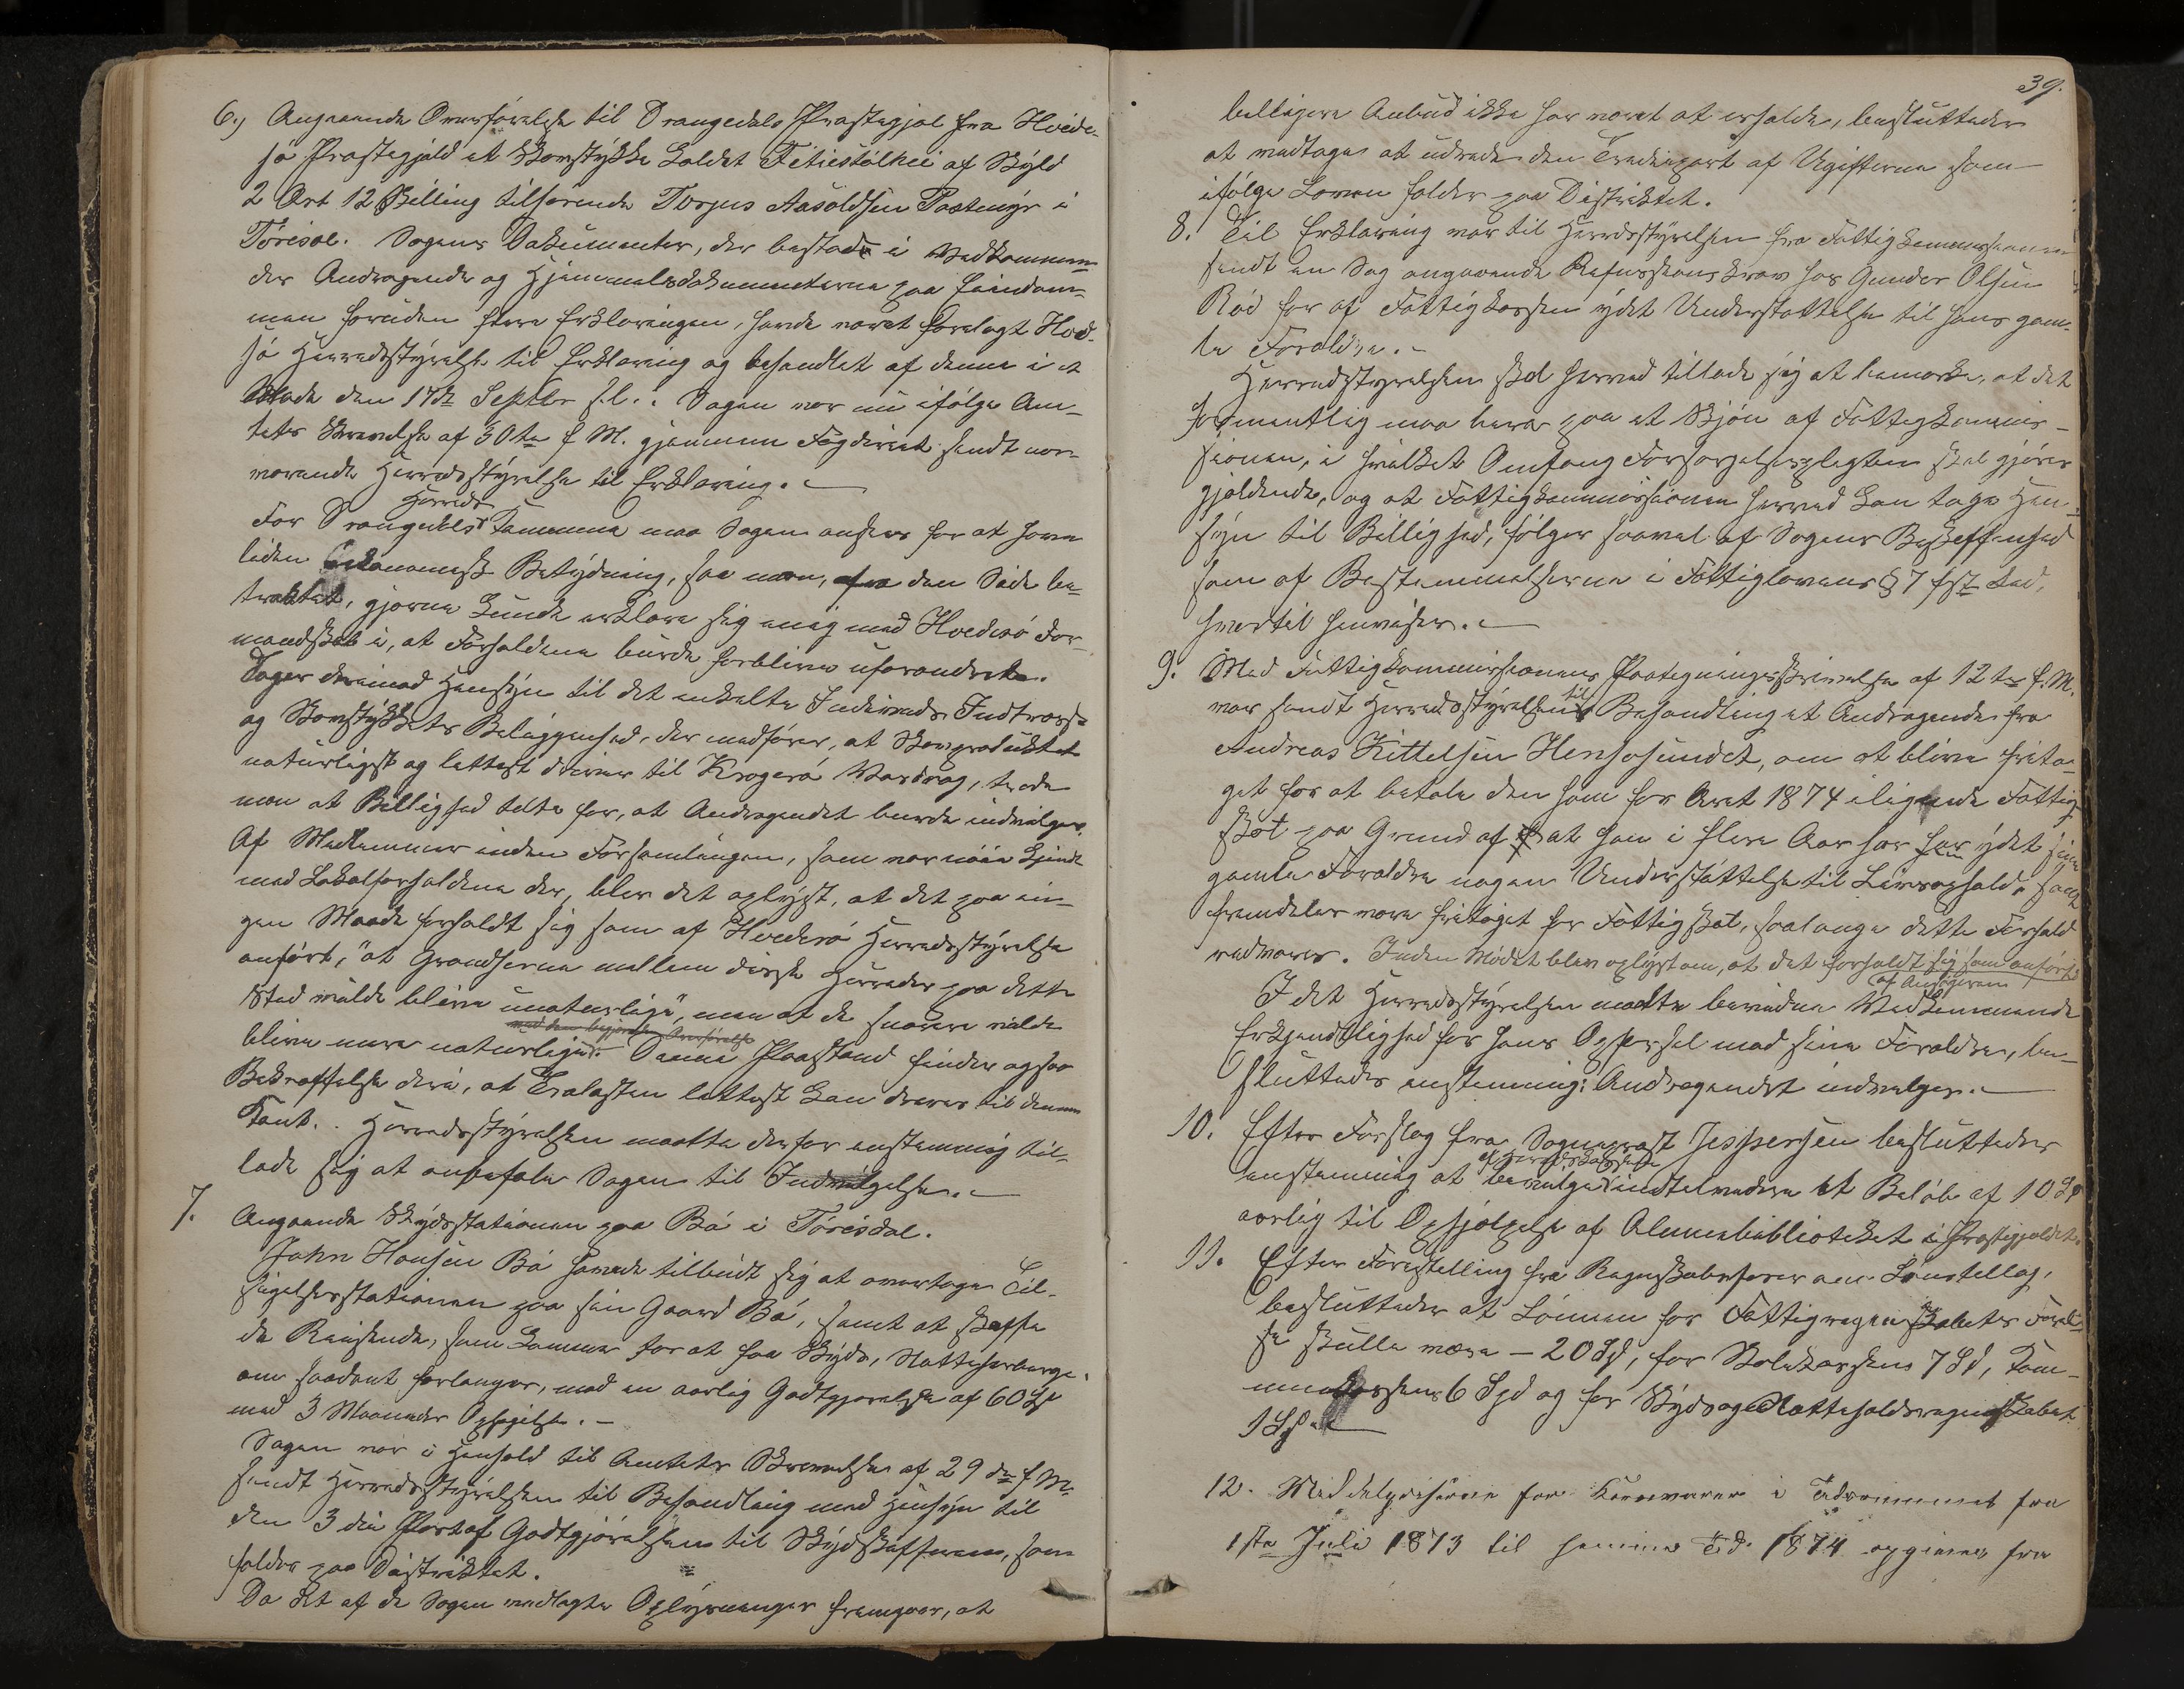 6., Angaaende Overførelse til Drangedals Præstegjæl fra Hvide-
sø Præstegjæld et Skovstykke kaldet af Skyld
2 Ort 12 Skilling tilhørende Torjus Aasoldsen Postmyr i
Tørisdl. Sagens Dokumenter, der bestode i Vedkommen-
des Andragende og Hjemmelsdokumenterne paa Eiendom-
men foruden flere Erklæringer, havde været forelagt Hvid-
sø Herredsstyrelse til Erklæring og behandlet af denne i et
Møde den 17de Septbr f.A. Sagen var nu ifølge Am-
tets Skrivelse af 30te f M. gjennem Fogderiet sendt nær-
værende Herredsstyrelse til Erklæring. —
For Drangedals Herreds Kommune maa Sagen ansees for at have
liden økonomisk Betydning, saa man, fra den Side be-
tragtet, gjerne kunde erklære sig enig med Hvidesø For-
mandskab i, at Forholdene burde forblive uforandrede.
Tages derimod Hensyn til det enkelte Individs Indtresse
og Skovstykkets Beliggenhed, der medfører, at Skovproduktet
naturligst og lettest drives til Kragerø Vasdrag, troede
man at Billighed talte for, at Andragendet burde indvilges.
Af Medlemmer inden Forsamlingen, som var nøie kjendt
med Lokalforholdene der, blev det oplyst, at det paa in-
gen Maade forholdt sig som af Hvidesø Herredsstyrelse
anført, "at Grændserne mellem disse Herreder paa dette
Sted vilde blive unaturlige", men at de snarere vilde
blive mere naturlige med den begjærte Overførelse. Denne Paastand finder ogsaa
Bekræftelse deri, at Trælasten lettest kan drives til denne
Kant. Herredsstyrelsen maatte derfor enstemmig til-
lade sig at anbefale Sagen til Indvilgelse. —
7. Angaaende Skydsstationen paa Bø i Tørisdal.
John Hansen Bø havde tilbudt sig at overtage Til-
sigelsesstationen paa sin Gaard Bø, samt at skaffe
de Reisende, som kommer for at faa Skyds, Natteherberge,
om saadant forlanges, mod en aarlig Godtgjørelse af 60 Spd
med 3 Maaneders Opsigelse. —
Sagen var i Henhold til Amtets Skrivelse af 29de f M.
sendt Herredsstyrelsen til Behandling med Hensyn til
den 3die Part af Godtgjørelsen til Skydsskafferen, som
falder paa Distriktet.
Da det af de Sagen vedlagte Oplysninger fremgaar, at
39.
billigere Anbud ikke har været at erholde, besluttedes
at vedtage at udrede den Trediepart af Ugifterne som
ifølge Loven falder paa Distriktet.
8. Til Erklæring var til Herredsstyrelsen fra Fattigkommissionen
sendt en Sag angaaende Refusionskrav hos Gunder Olsen
Rød for af Fattigkassen ydet Understøttelse til hans gam-
le Forældre. —
Herredsstyrelsen skal herved tillade sig at bemærke, at det
formentlig maa bero paa et Skjøn af Fattigkommis-
sionen, i hvilket Omfang Forsørgelsespligten skal gjøres
gjældende, og at Fattigkommissionen herved kan tage Hen-
syn til Billighed, følger saavel af Sagens Beskaffenhed
som af Bestemmelserne i Fattiglovens § 7 1ste Led,
hvortil henvises. —
9. Med Fattigkommissionens Paategningsskrivelse af 12te f. M.
var sendt Herredsstyrelsen til Behandling et Andragende fra
Andreas Kittelsen Hensosundet, om at blive frita-
get for at betale den ham for Aaret 1874 ilignede Fattig-
skat paa Grund af at han i flere Aar har ydet sine
gamle Forældre nogen Understøttelse til Livsophold, samt
fremdeles være fritaget for Fattigskat, saalænge dette Forhold
vedvarer. Inden Mødet blev oplyst om, at det forholdt sig som anført
af Ansøgeren
I det Herredsstyrelsen maatte bevidne Vedkommende
Erkjendtlighed for hans Opførsel mod sine Forældre, be-
sluttedes enstemmig: Andragendet indvilges. —
10. Efter Forslag fra Sogneprest Jespersen besluttedes
enstemmig at bevilge af Herredskassen indtilvidere et Beløb af 10 Spd
aarlig til Ophjælpelse af Almuebiblioteket i Præstegjeldet.
11. Efter Forestilling fra Regnskabsfører om Lønstillæg,
besluttedes at Lønnen for Fattigregnskabets Førel-
se skulle være — 20 Spd, for Skolekassens 7 Spd, Kom-
munekassens 6 Spd og for Skyds og Natteholdsregnskabet
1 Spd. —
12. Middelpriserne for Kornvarer i Tidsrummet fra
1ste Juli 1873 til samme Tid 1874 opgives fra